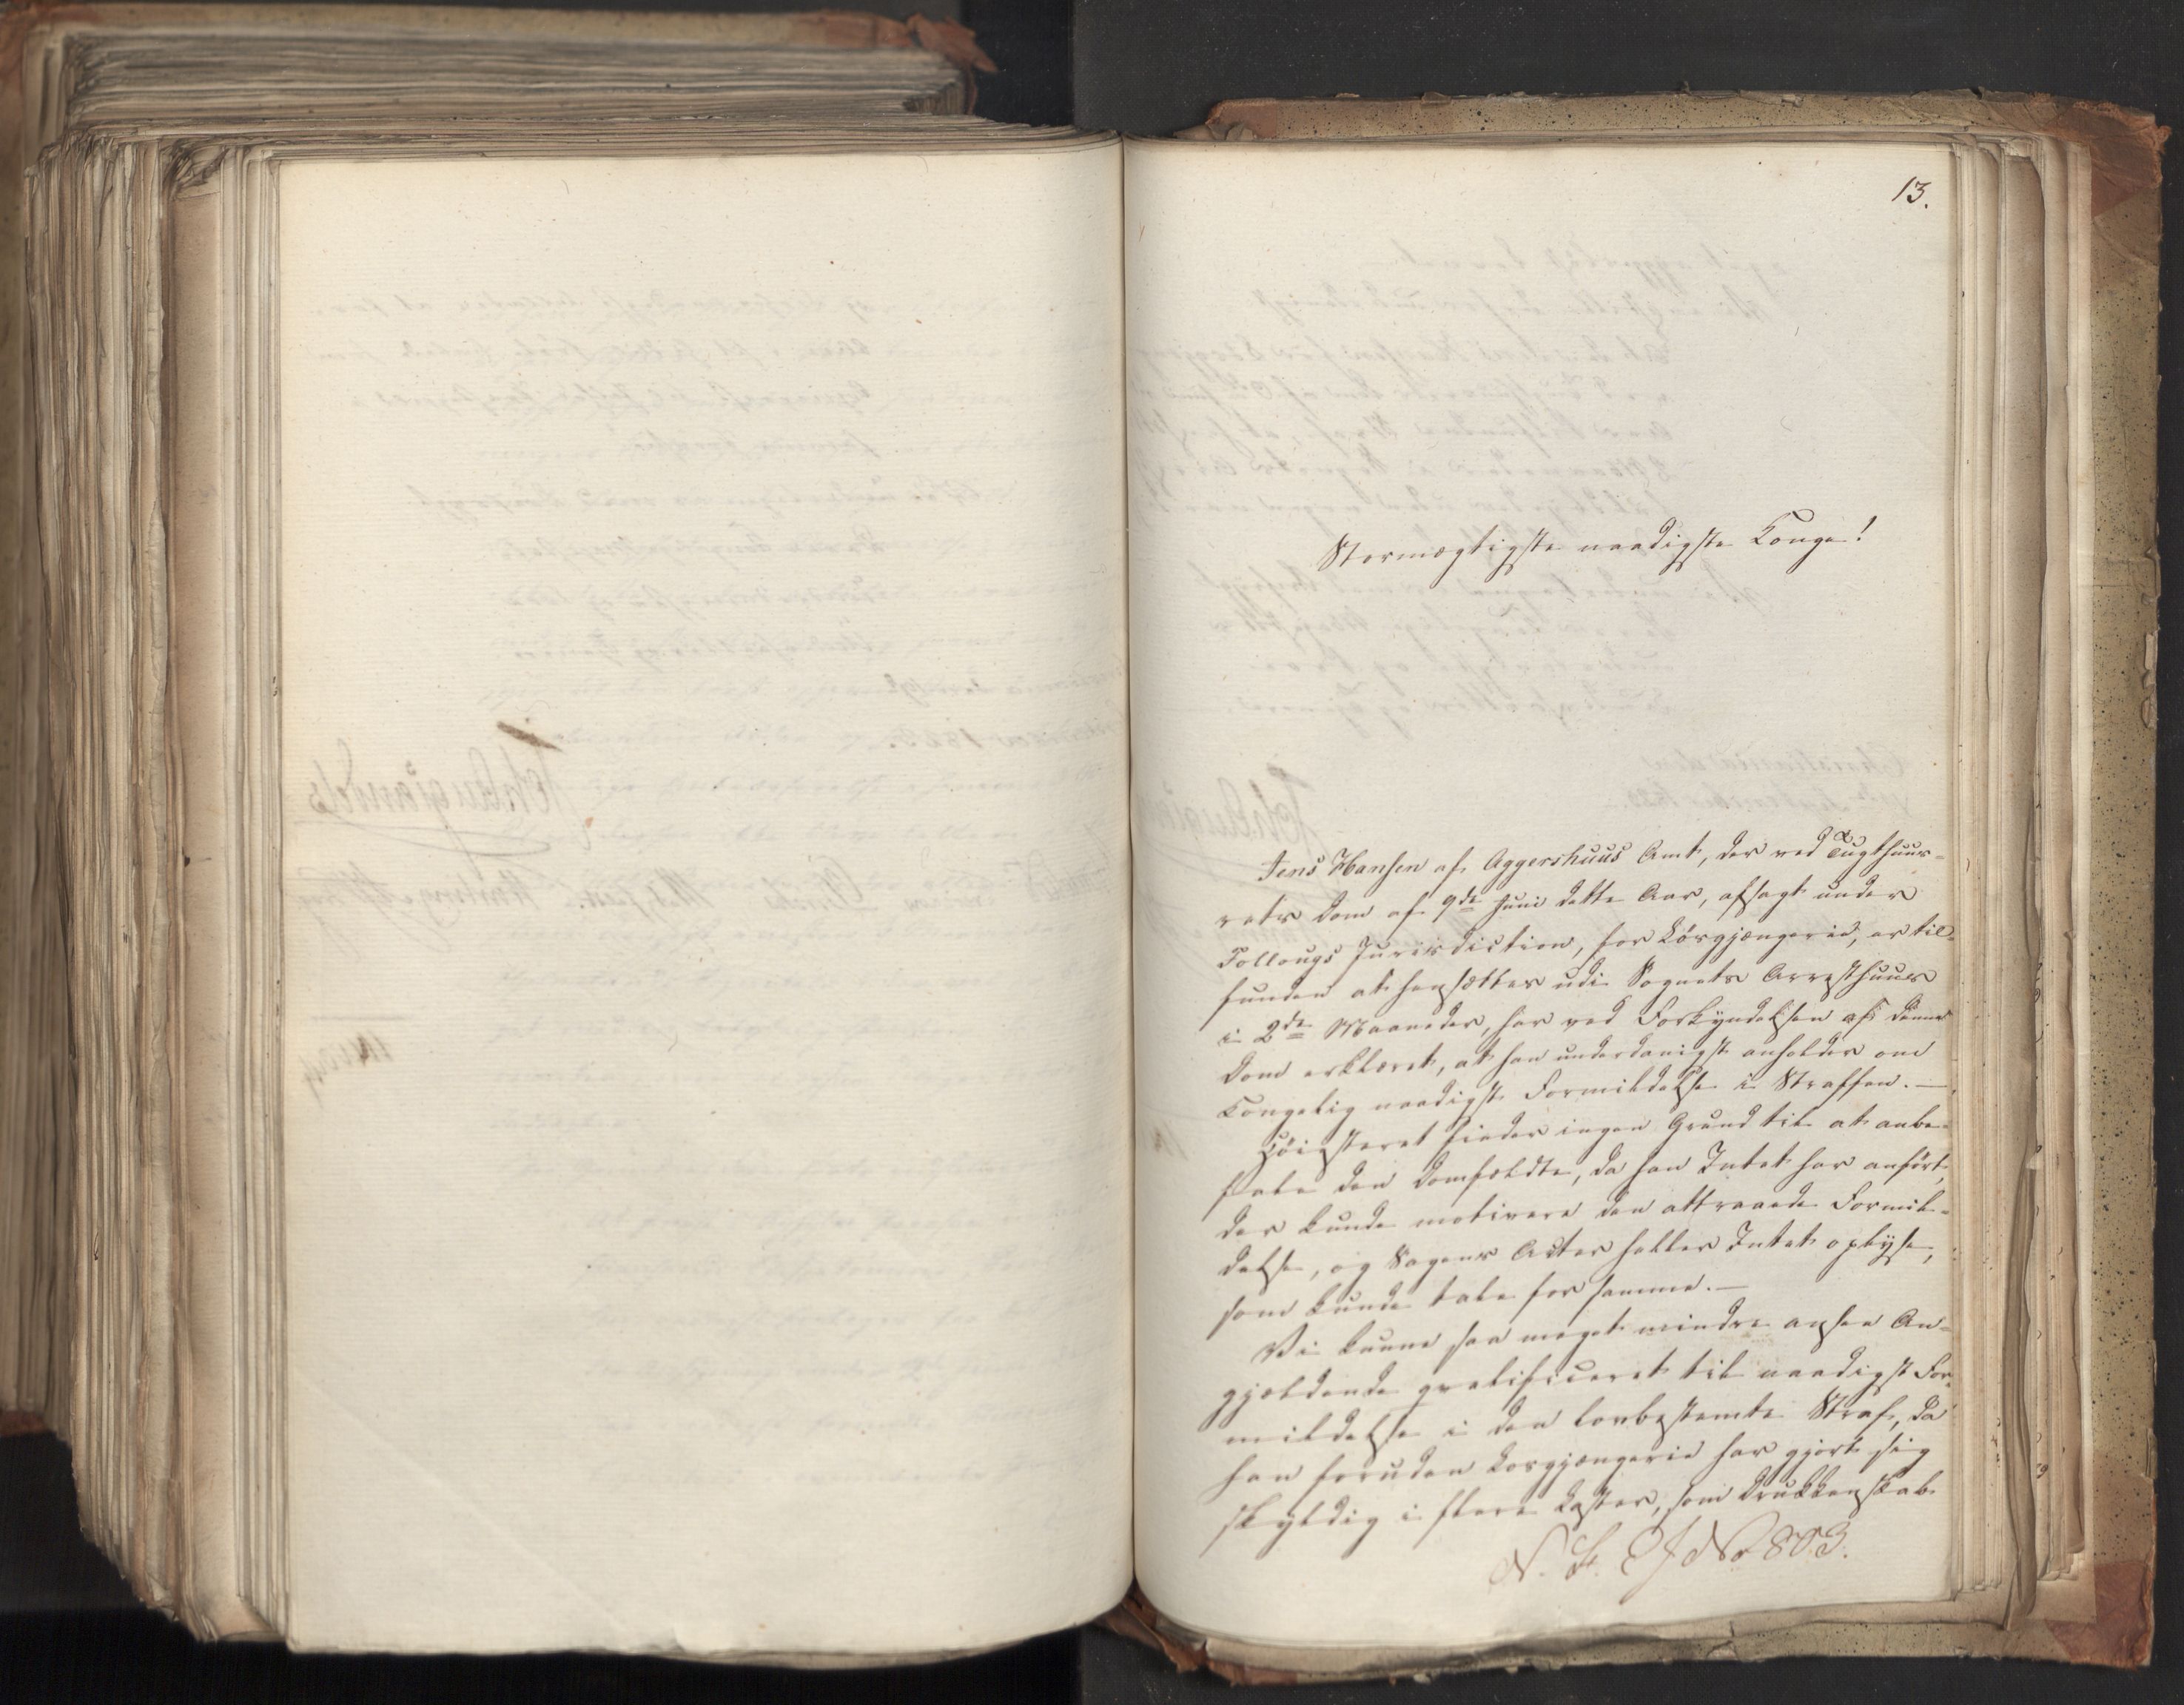 13.
Stormægtigste naadigste Konge!
Jens Hansen af Aggershuus Amt, der ved Tugthuus-
rets Dom af 9de Juni dette Aar, afsagt under
Follougs Jurisdiction, for Løsgjængerie, er til-
funden at hensættes udi Sognets Arresthuus
i 2de Maaneder, har ved Forkyndelsen af denne
Dom erklæret, at han underdanigst anholder om
Kongelig naadigst Formildelse i Straffen. —
Høiesteret finder ingen Grund til at anbe-
fale den Domfældte, da han Intet har anført,
der kunde motivere den attraaede Formil-
delse, og Sagens Acter heller Intet oplyse,
som kunde tale for samme. —
Vi kunne saa meget mindre ansee An-
gjældende qvalificeret til naadigst For-
mildelse i den lovbestemte Straf, da
han foruden Løsgjængerie har gjort sig
skyldig i flere Laster, som Drukkenskab
No 803.